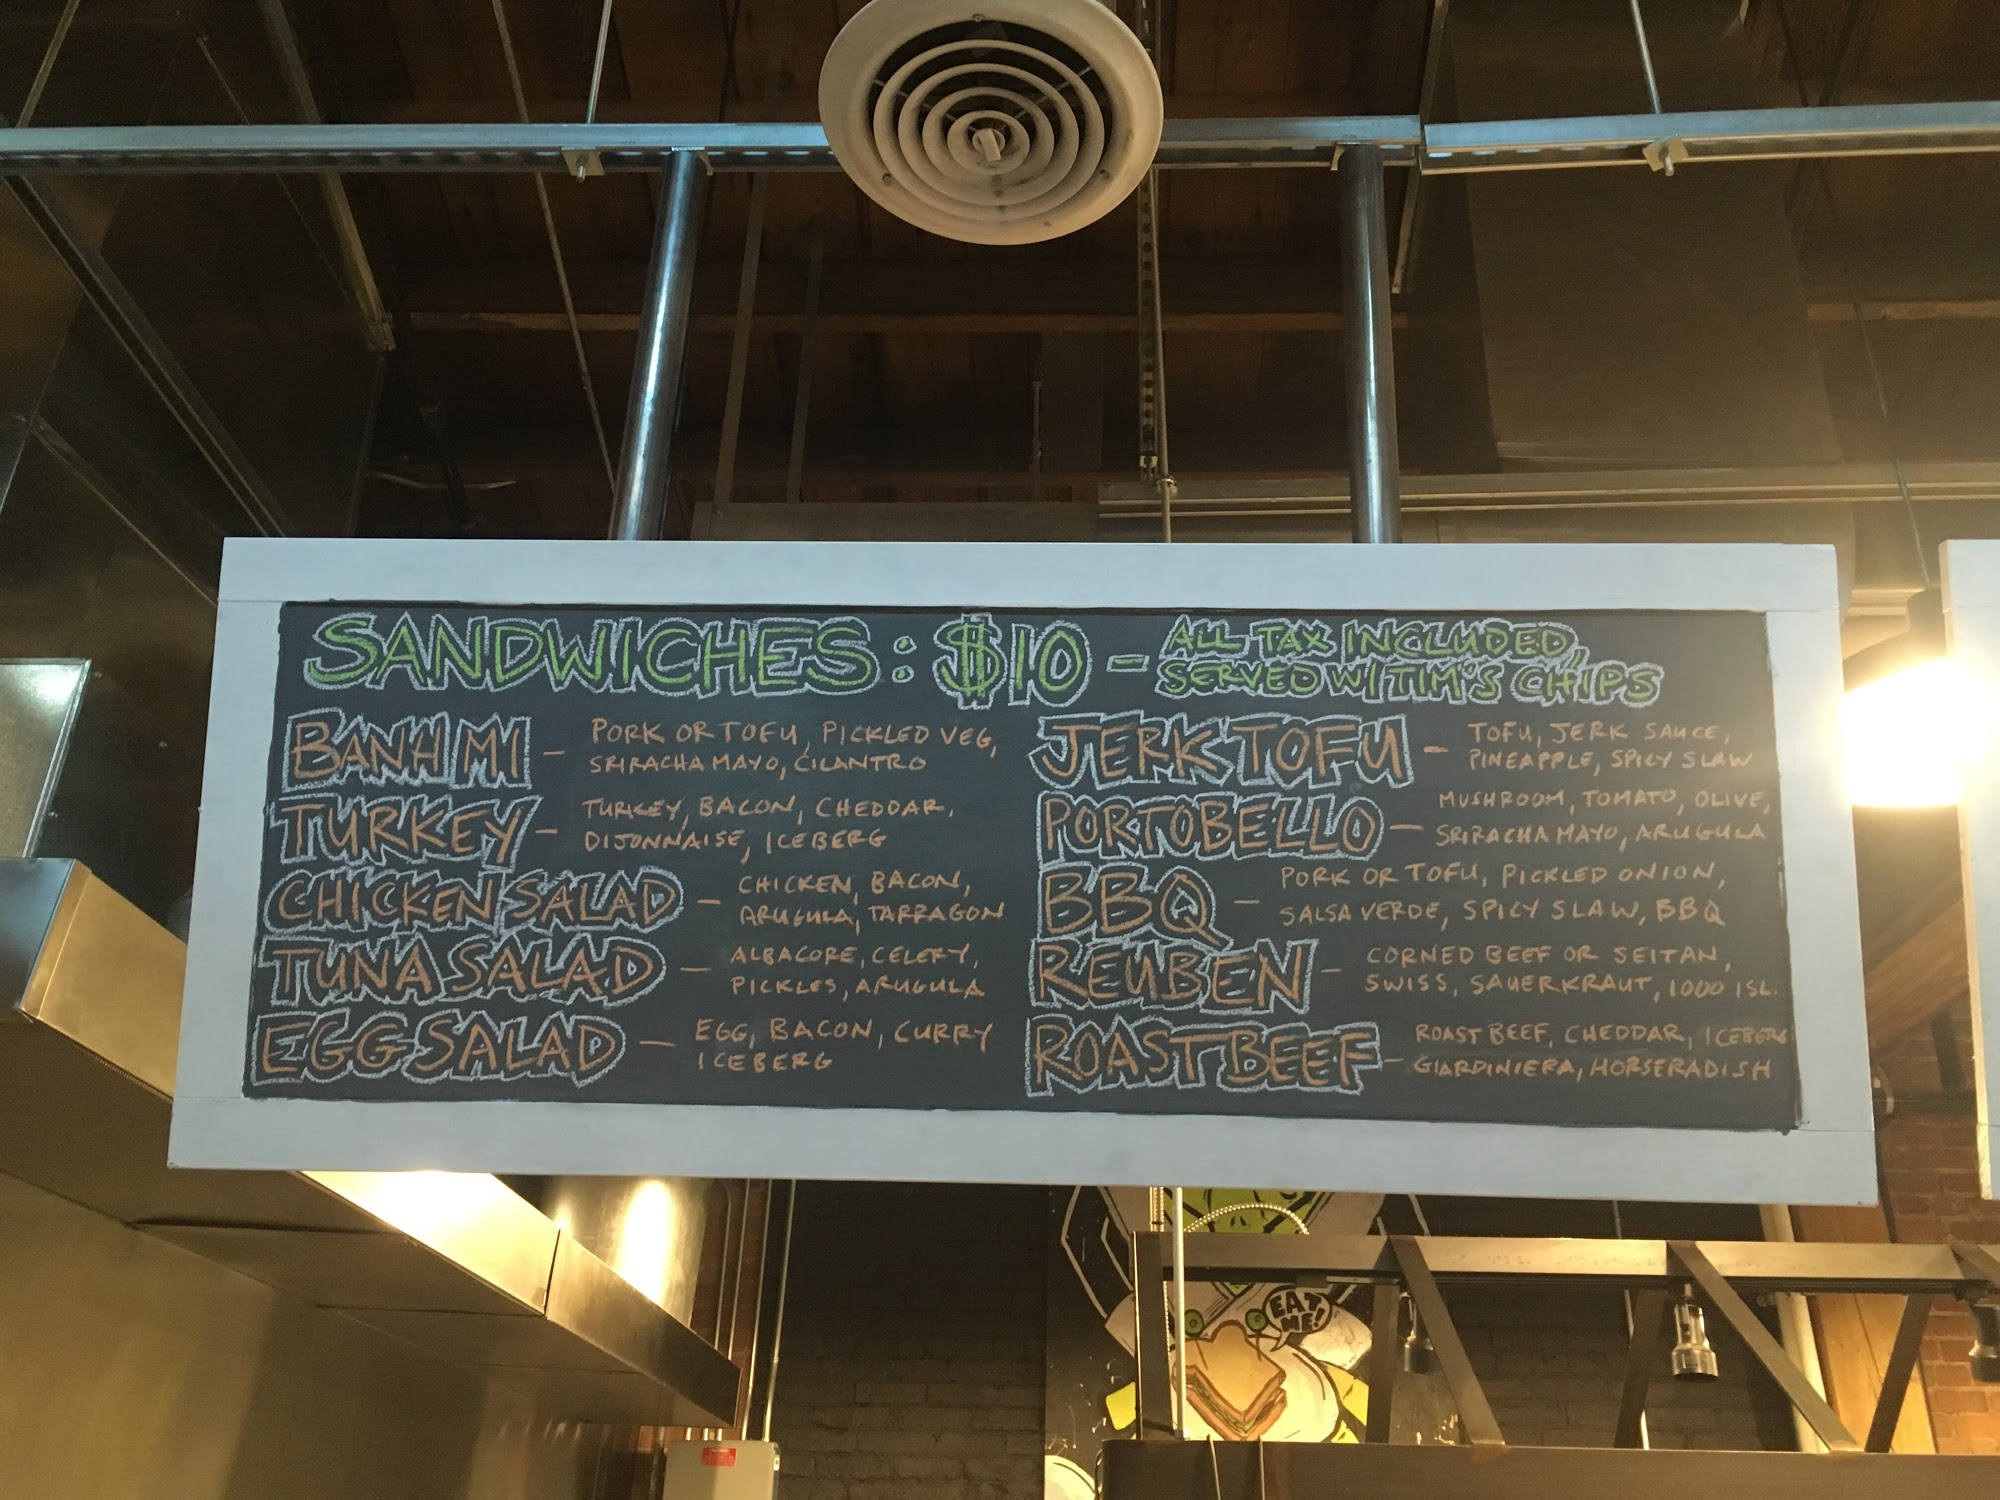 SANDWICHES: $10 - ALL TAX INCLUDED,
SERVED W/ TIM'S CHIPS
BANH MI - PORK OR TOFU, PICKLED VEG,
SRIRACHA MAYO, CILANTRO
TURKEY - TURKEY, BACON, CHEDDAR,
DIJONNAISE, ICEBERG
CHICKEN SALAD - CHICKEN, BACON,
ARUGULA, TARRAGON
TUNA SALAD - ALBACORE, CELERY,
PICKLES, ARUGULA
EGG SALAD - EGG, BACON, CURRY
ICEBERG
JERK TOFU - TOFU, JERK SAUCE,
PINEAPPLE, SPICY SLAW
PORTOBELLO - MUSHROOM, TOMATO, OLIVE,
SRIRACHA MAYO, ARUGULA
BBQ - PORK OR TOFU, PICKLED ONION,
SALSA VERDE, SPICY SLAW, BBQ
REUBEN - CORNED BEEF OR SEITAN,
SWISS, SAUERKRAUT, 1000 ISL.
ROAST BEEF - ROAST BEEF, CHEDDAR, ICEBERG
GIARDINIERA, HORSERADISH
EAT
ME!